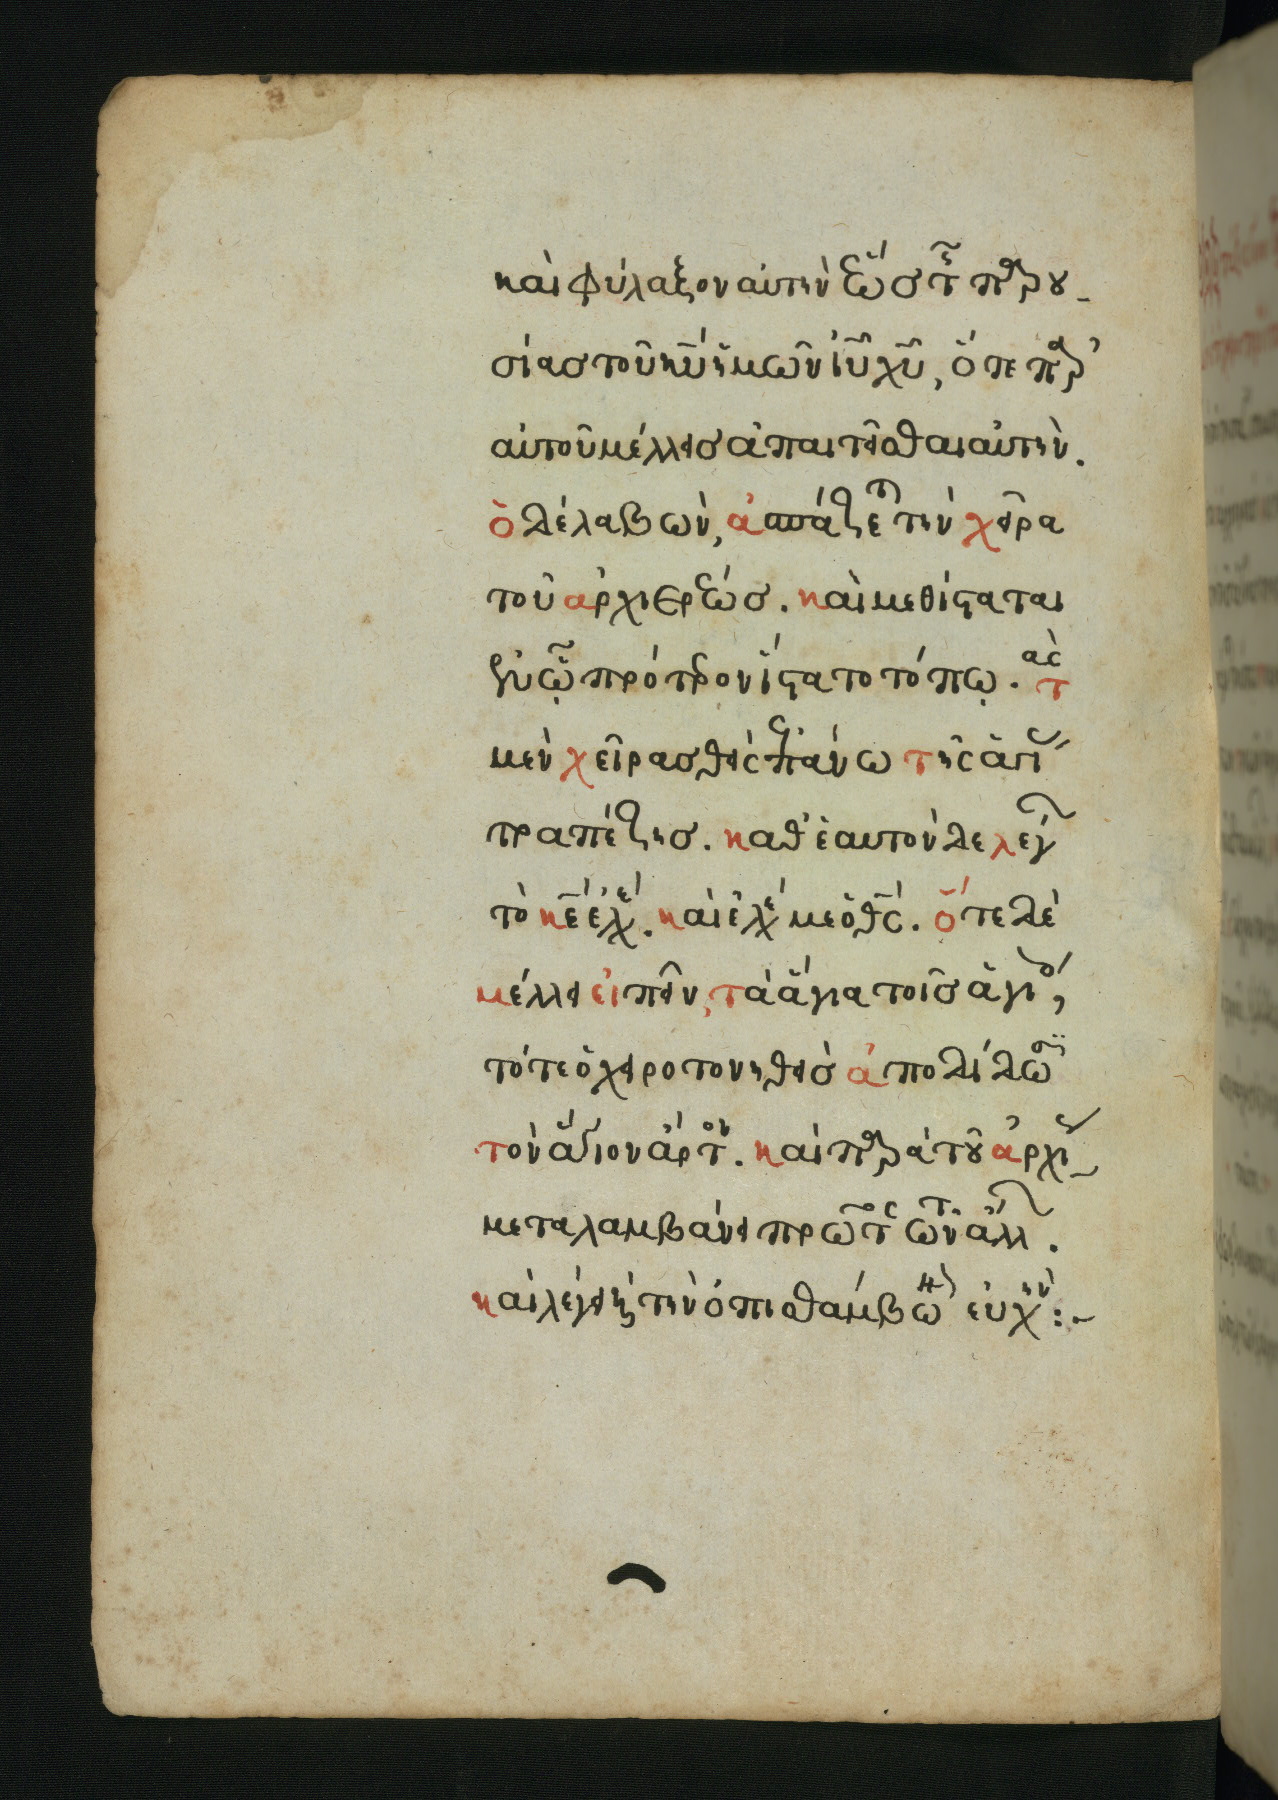 καὶ φύλαξον αὐτὴν ἕως τῆς παρου-
σίας τοῦ κυ ἡμῶν ιυ χυ, ὅτε παρ'
αὐτοῦ μέλλεις ἀπαιτεῖσθαι αὐτήν.
ὁ δὲ λαβὼν, ἀσπάζεται τὴν χεῖρα
τοῦ ἀρχιερέως. καὶ μεθίσταται
ἐν ᾧ πρότερον ἵστατο τόπῳ. τὰς
μὲν χεῖρας θεὶς ἐπάνω τῆς ἁγί
τραπέζης. καθ' ἑαυτὸν δὲ λέγει
τὸ κε ἐλέ. καὶ ἐλέ με ὁ θς. ὅτε δὲ
μέλλει εἰπεῖν, τὰ ἅγια τοῖς ἁγί,
τότε ὁ χειροτονηθεὶς ἀποδίδωσι
τὸν ἅγιον ἄρτον. καὶ παρὰ τοῦ ἀρχι
μεταλαμβάνει πρῶτος τῶν ἄλλ.
καὶ λέγει καὶ τὴν ὀπισθάμβων εὐχήν :~